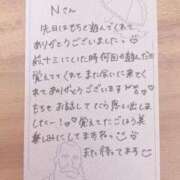 Nさん
先日はもちと遊んでくれて
ありがとうございました。
前、十三にいた時何回か遊んだの
覚えててくれてまた会いに来てくれて
ありがとうございます
もちもお話ししてたら思い出しま
したー!覚えてたごほう美
楽しみにしてますね
また待ってます